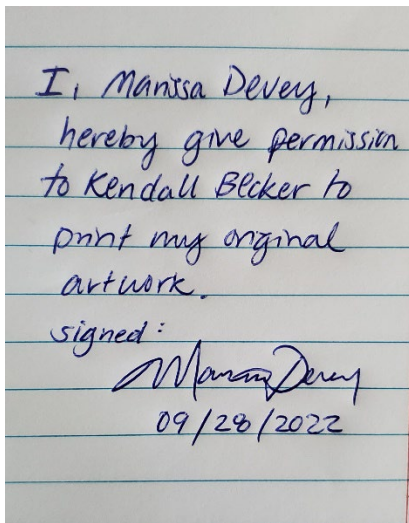 I, Marissa Devey,
hereby give permission
to Kendall Becker to
print my original
artwork.
signed:
Marissa Devey
09/28/2022